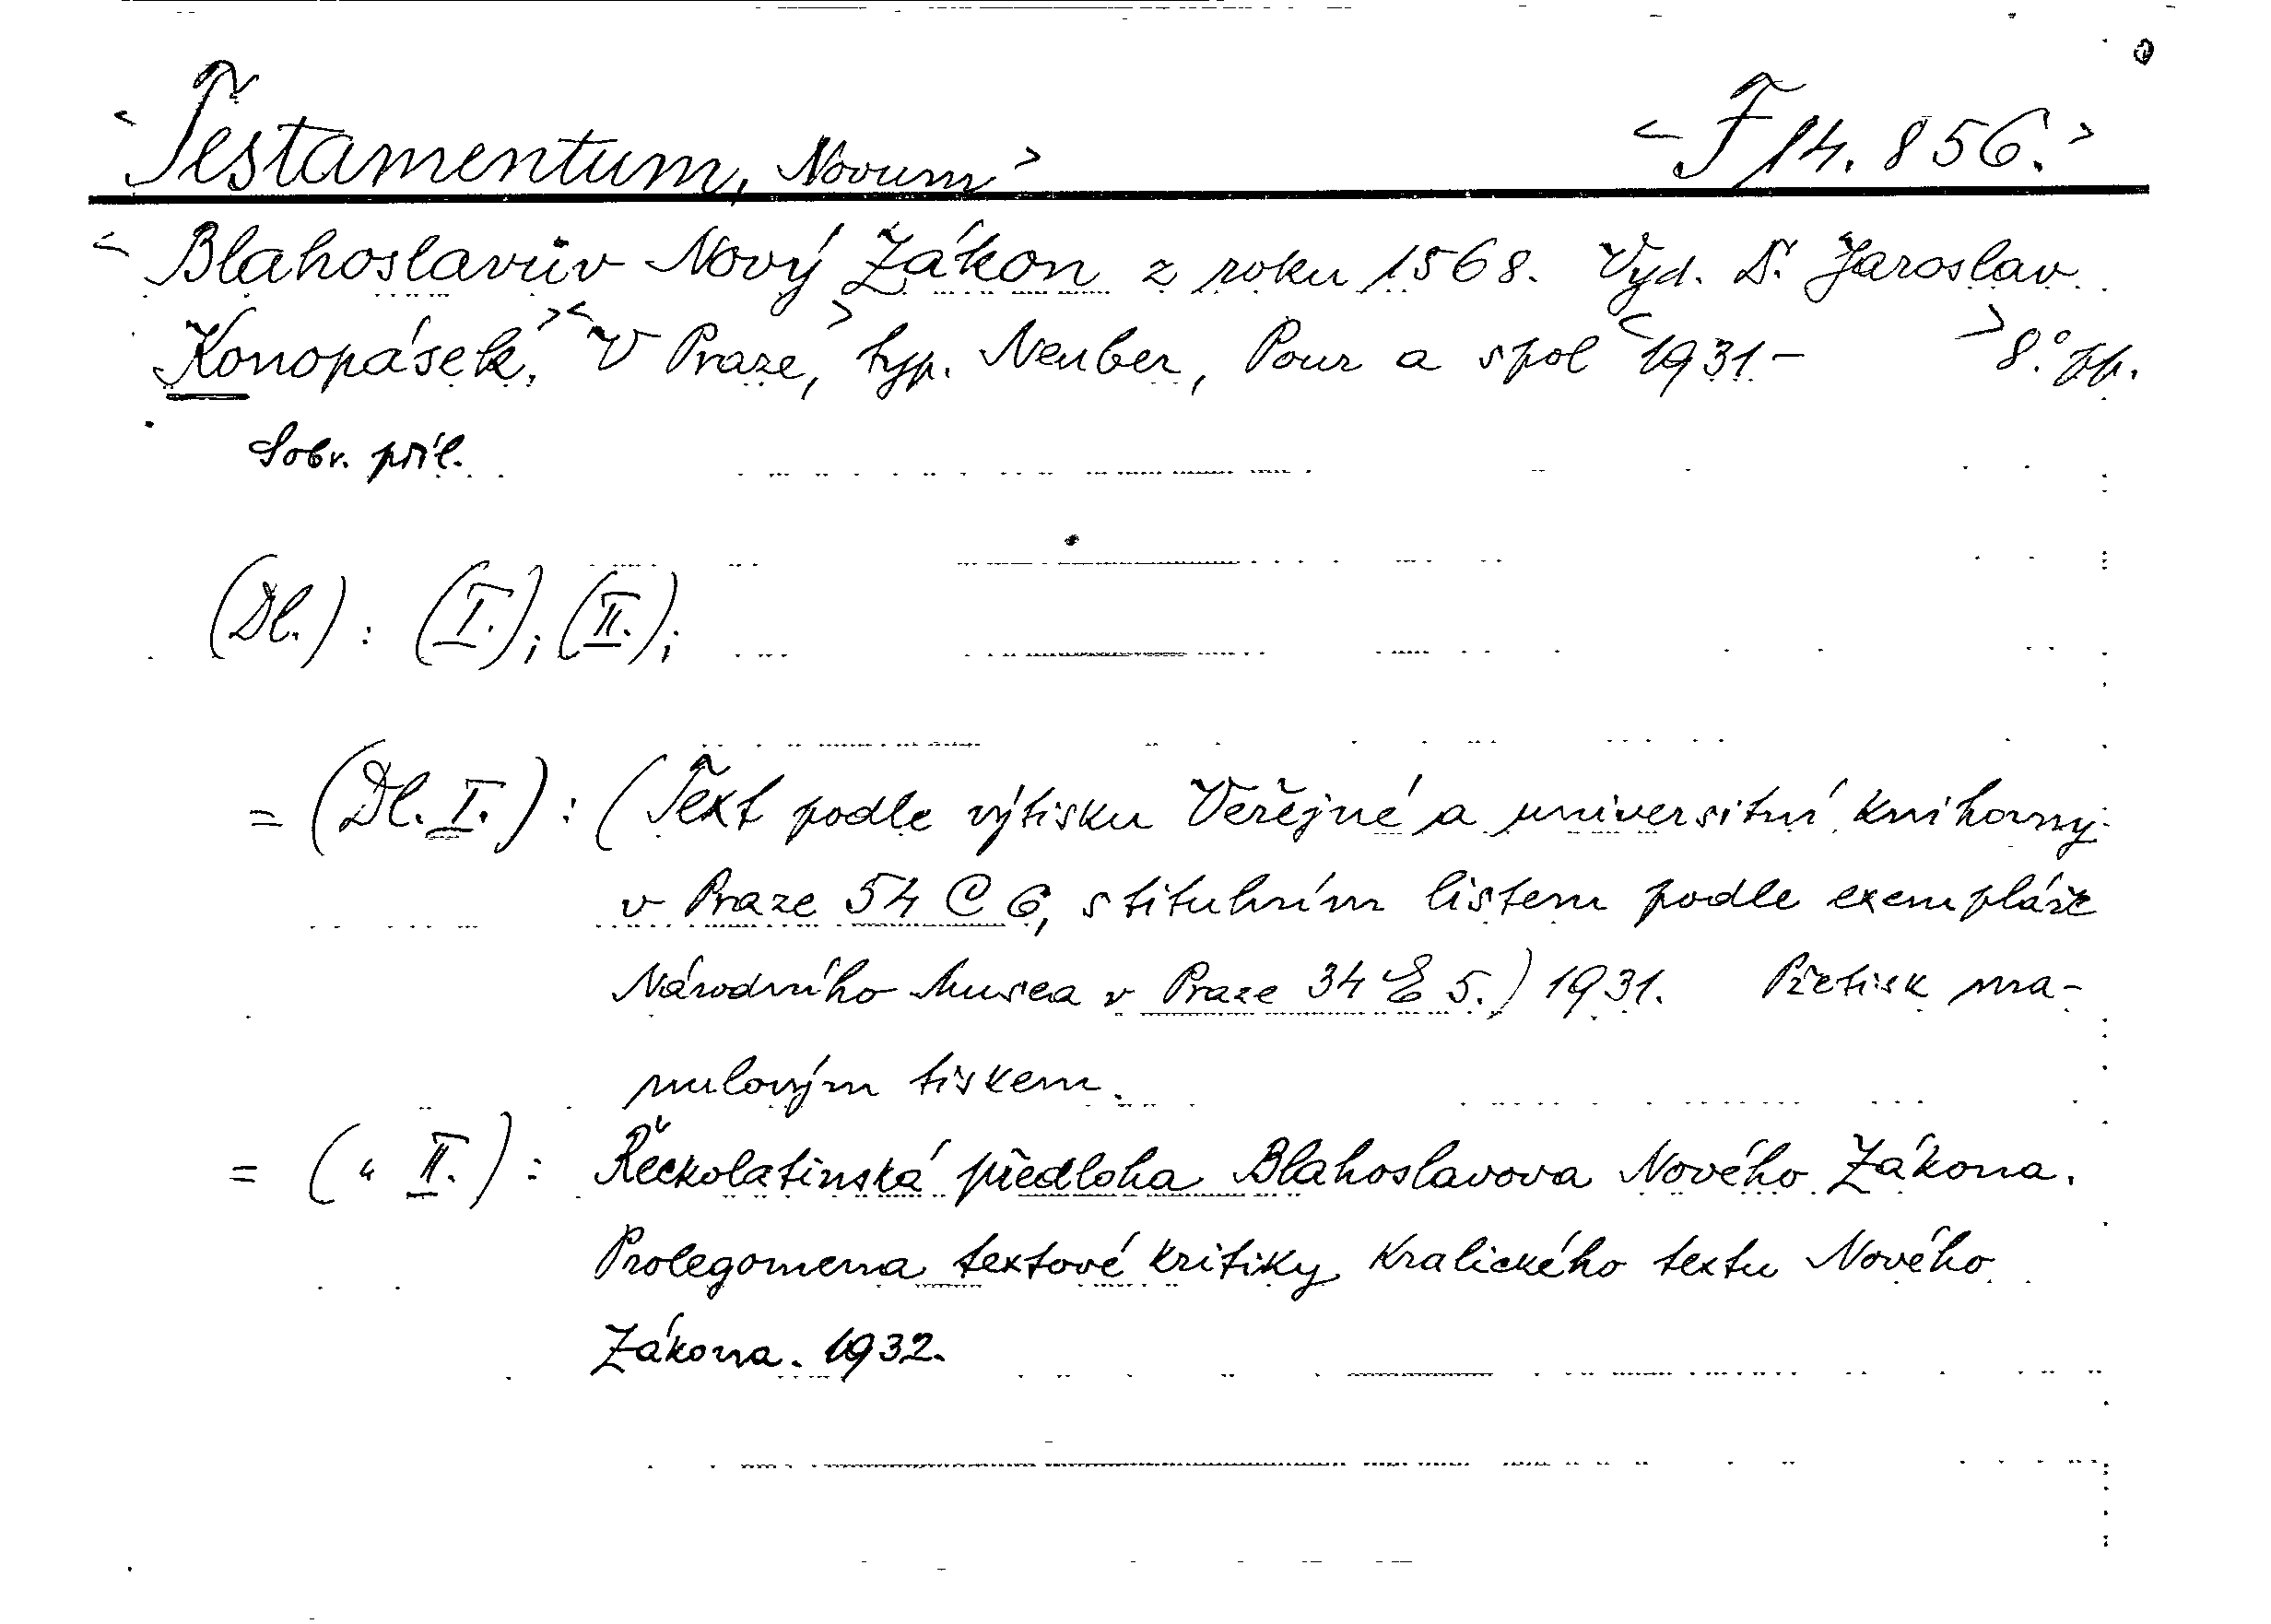 <Testamentum, Novum> <F 14.856.>
<Blahoslavův Nový Zákon z roku 1568. Vyd. Dr. Jaroslav
Konopásek.> <V Praze,> typ. Neuber, Pour a spol <1931- > 8° pp.
Sobr. příl.
(Dl.): (I.); (II.);
= (Dl. I.): (Text podle výtisku Veřejné a universitní knihovny
v Praze 54 C 6, s titulním listem podle exempláře
Národního Musea v Praze 34 E 5.) 1931. Přetisk ma-
nulovým tiskem.
= (" II.): Řeckolatinská předloha Blahoslavova Nového Zákona.
Prolegomena textové kritiky Kralického textu Nového
Zákona. 1932.